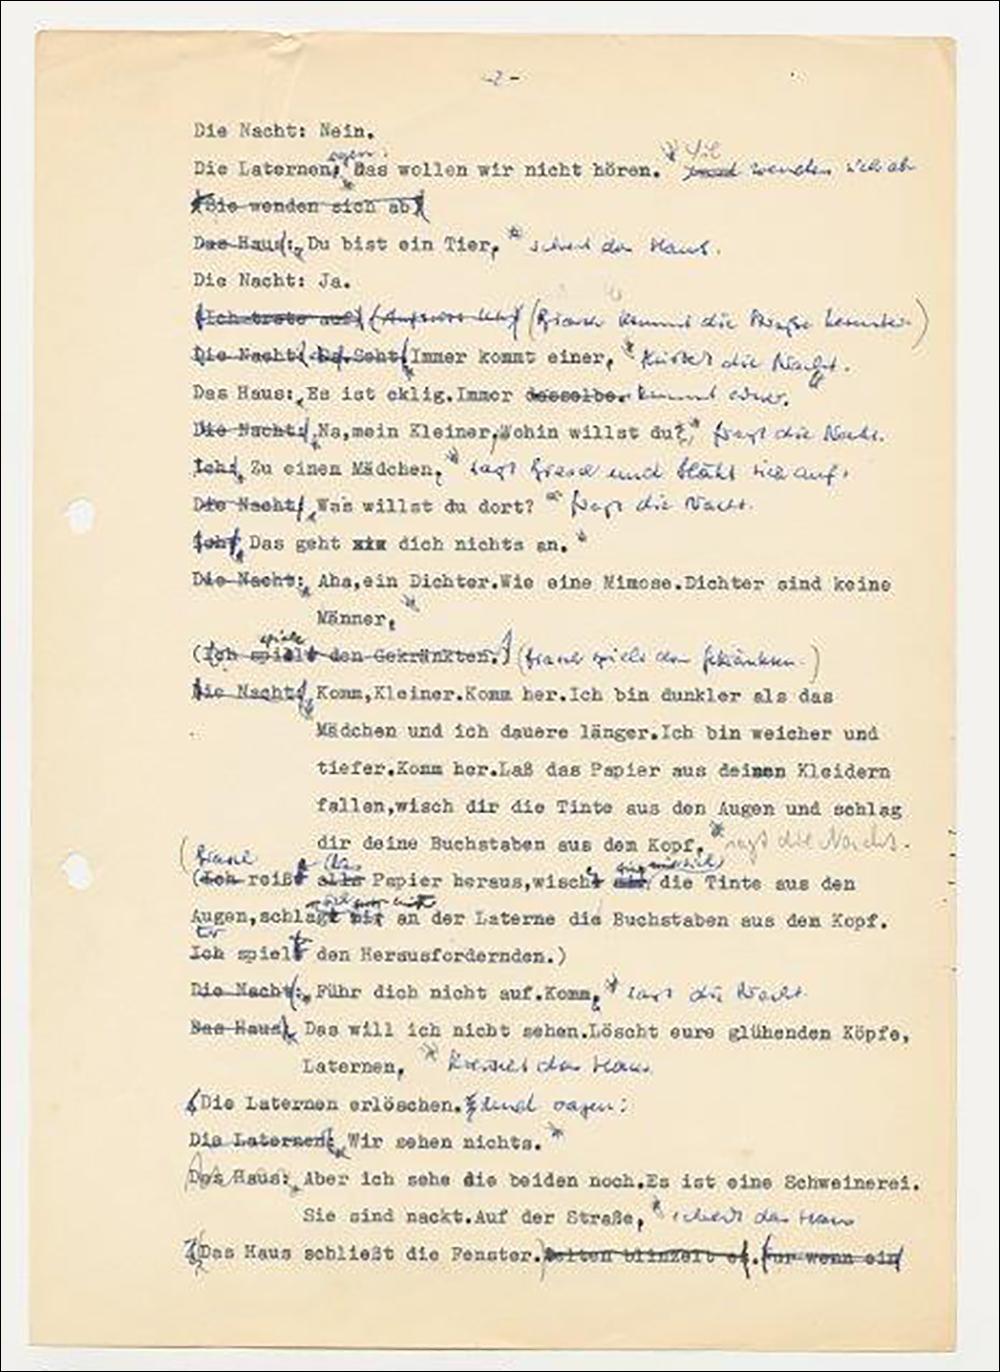 -2-
Die Nacht: Nein.
Die Laternen sagen: Das wollen wir nicht hören." und wenden sich ab
(Sie wenden sich ab)
Das Haus: "Du bist ein Tier," schreit das Haus.
Die Nacht: Ja.
(Ich trete auf) (kommt die Straße herunter.)
Die Nacht: Da. Seht Immer kommt einer," flüstert die Nacht.
Das Haus: "Es ist eklig.Immer dasselbe. kommt einer.
Die Nacht: "Na,mein Kleiner,Wohin willst du?" fragt die Nacht.
Ich: "Zu einem Mädchen," sagt und bläht sich auf.
Die Nacht: "Was willst du dort?" fragt die Nacht.
Ich: "Das geht xix dich nichts an."
Die Nacht: "Aha,ein Dichter.Wie eine Mimose.Dichter sind keine
Männer."
(Ich spiele den Gekränkten.) (spielt den Gekränkten.)
Die Nacht: "Komm,Kleiner.Komm her.Ich bin dunkler als das
Mädchen und ich dauere länger.Ich bin weicher und
tiefer.Komm her.Laß das Papier aus deinen Kleidern
fallen,wisch dir die Tinte aus den Augen und schlag
dir deine Buchstaben aus dem Kopf," sagt die Nacht.
(Ich reißt alle das Papier heraus,wischt mir die Tinte aus den
Augen,schlagt mir an der Laterne die Buchstaben aus dem Kopf.
Ich Er spielt den Herausfordernden.)
Die Nacht: "Führ dich nicht auf.Komm," sagt die Nacht.
Das Haus: "Das will ich nicht sehen.Löscht eure glühenden Köpfe,
Laternen," das Haus.
(Die Laternen erlöschen.) und sagen:
Die Laternen: "Wir sehen nichts."
Das Haus: "Aber ich sehe die beiden noch.Es ist eine Schweinerei.
Sie sind nackt.Auf der Straße," schreit das Haus
(Das Haus schließt die Fenster.) Selten blinzelt es. Nur wenn ein